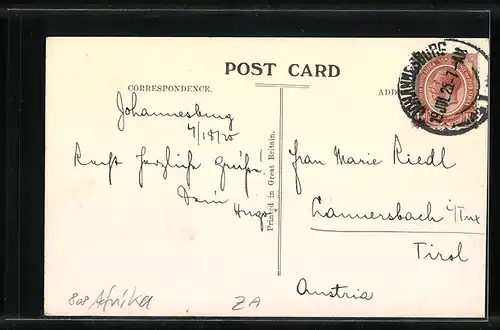 POST CARD
CORRESPONDENCE.
ADD
JOHANNESBURG
Johannesburg
Recht herzliche Grüsse!
Dein
Hugo
Printed in Great Britain.
Frau Marie Riedl
Lannersbach
Tirol
Austria
Afrika
ZA